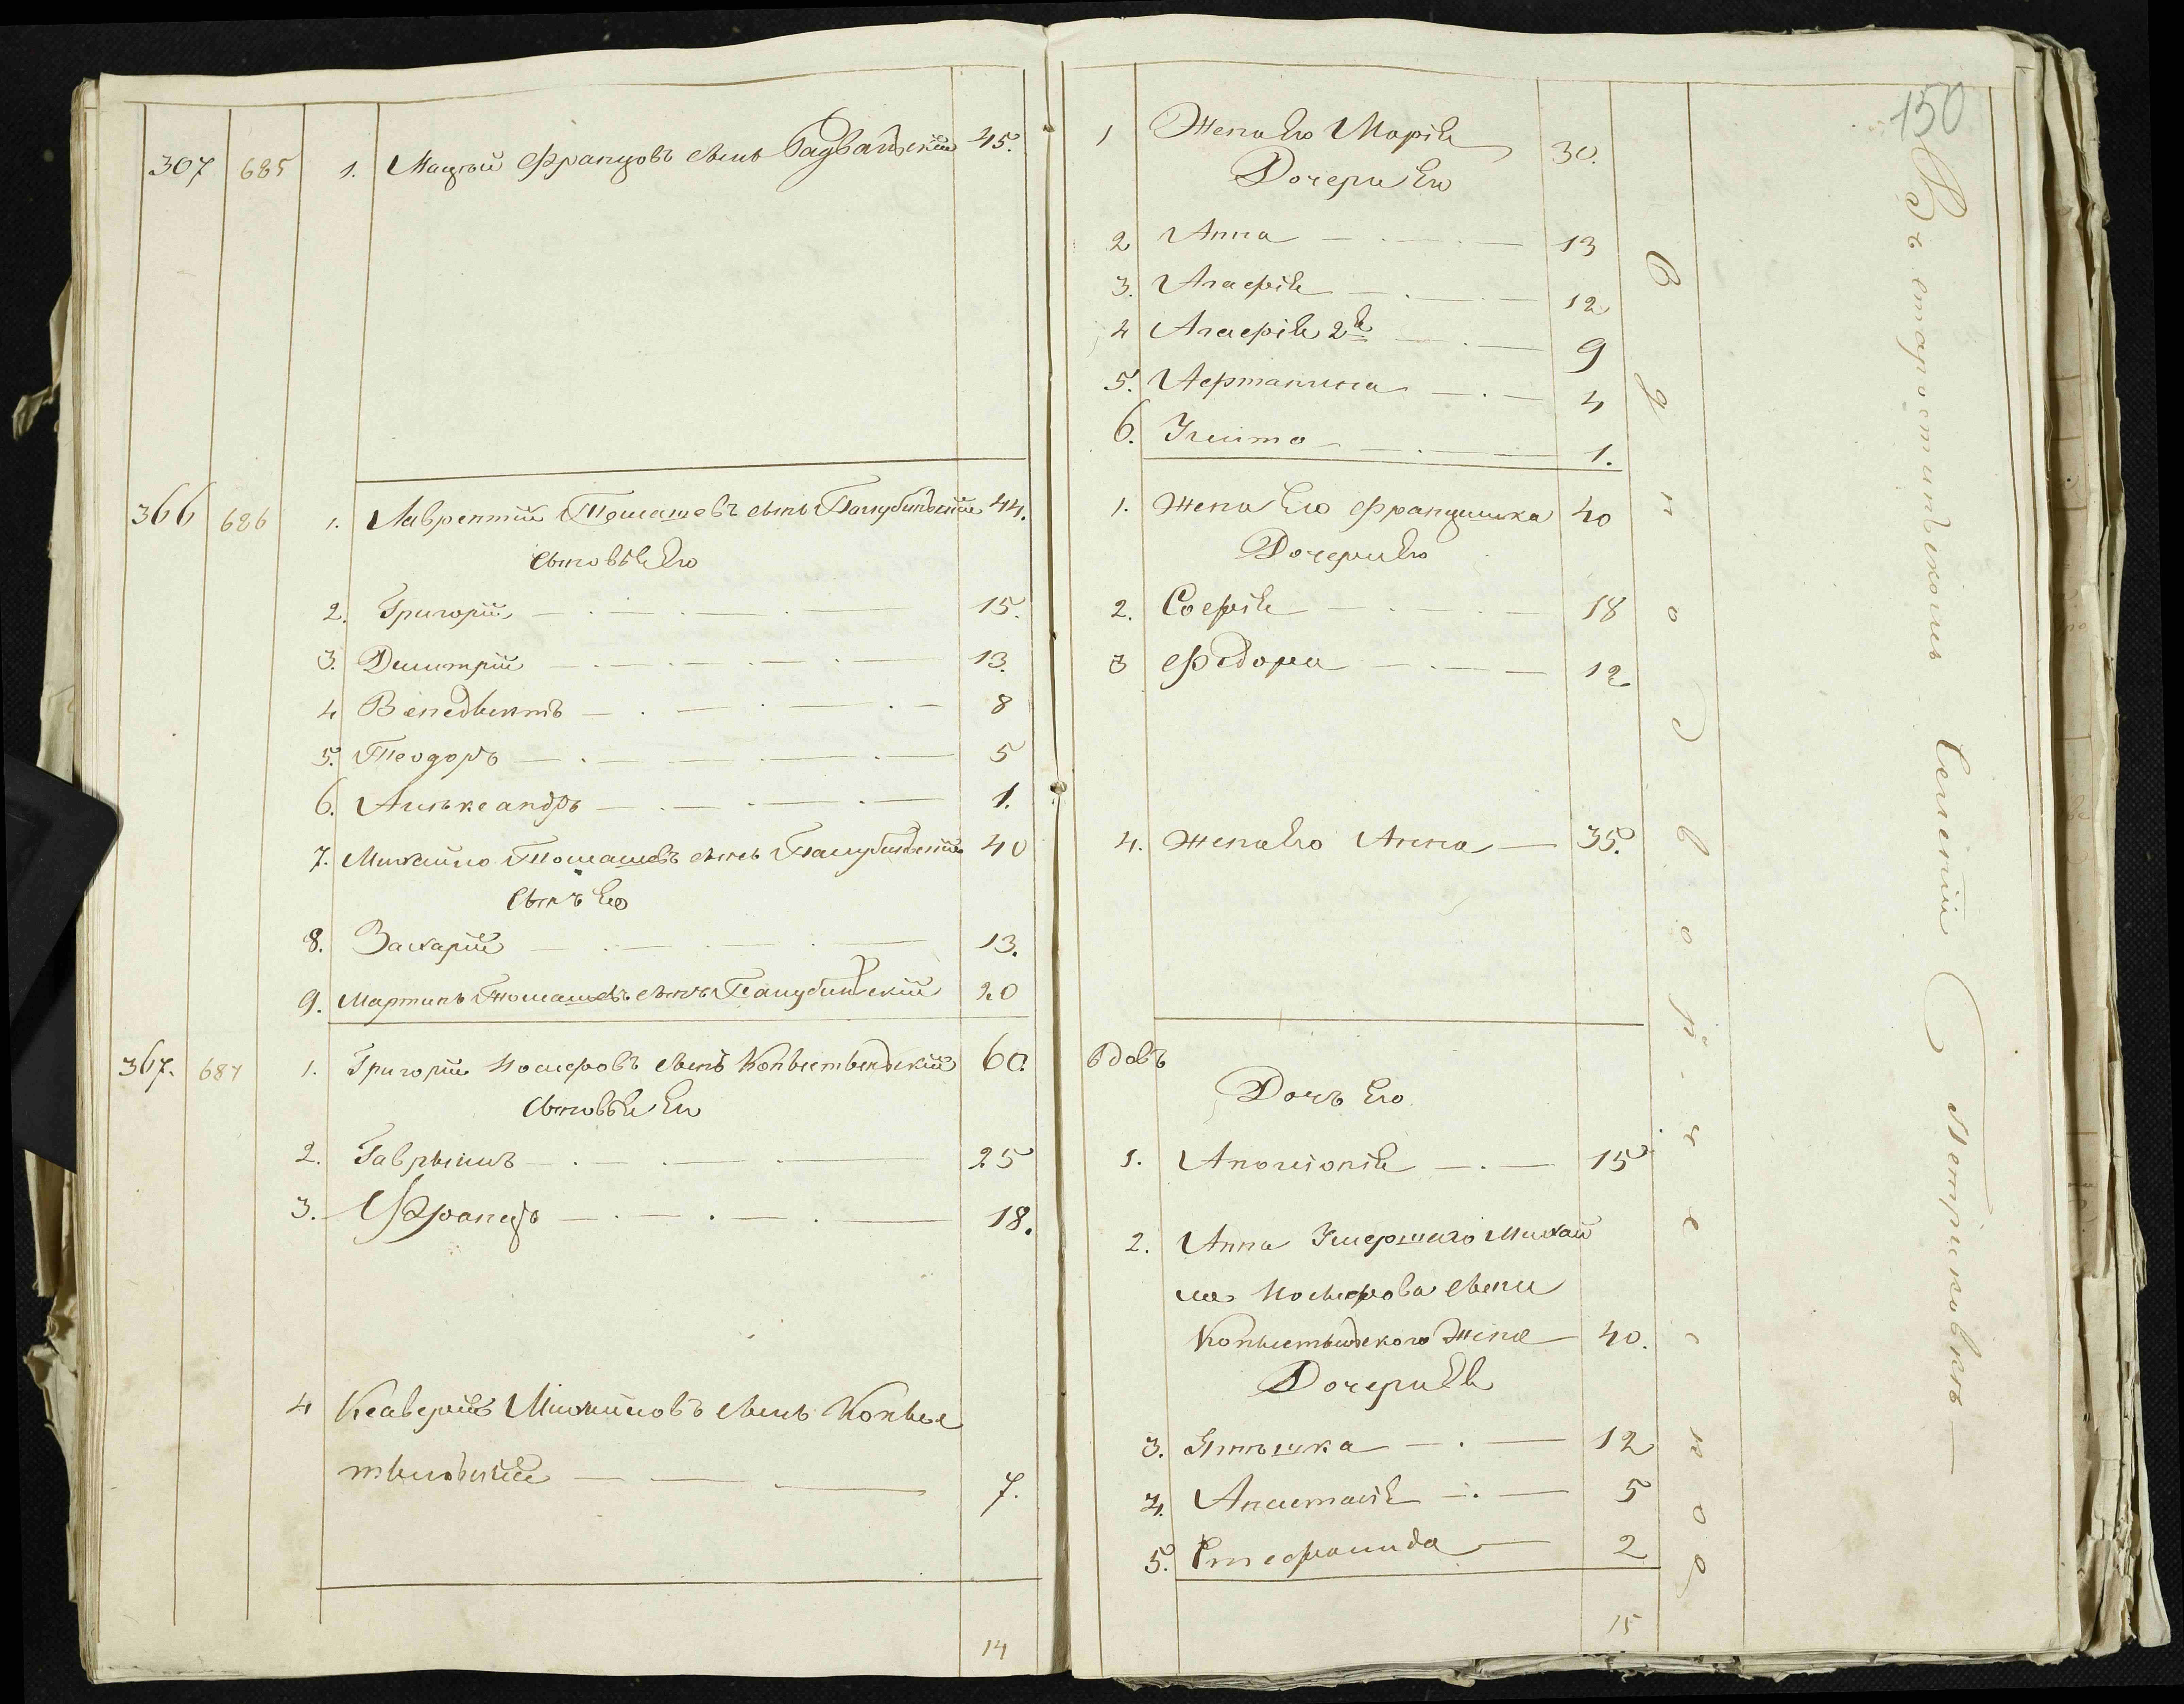 307 685 1. Мацѣй Францовъ сынъ Радванскій 45.
366 686 1. Лаврентій Томашовъ сынъ Голубинскій 44.
сыновья Его
2. Григорій 15.
3. Дмитрій 13.
4 Венедыктъ 8
5. Теодоръ 5
6. Алѣксандръ 1.
7. Михайло Томашовъ сынъ Голубинскій 40
Сынъ Его
8. Захарій 13.
9. Мартинъ Томашовъ сынъ Голубинскій 20
367. 687 1. Григорій Іосифовъ сынъ Копыстынскій 60.
сыновья Его
2. Гаврыилъ 25
3. Францъ 18.
4 Ксаверій Михайловъ сынъ Копыс
тынскій 7.
14
150
1 Жена Его Марія 30.
Дочери Его
2 Анна 13
3. Агафія 12
4 Агафія 2я 9
5. 4
6. 1.
1. Жена Его Францишка 40
Дочери Его
2. Софія 18
3 Федора 12
4. Жена Его Анна 35.
вдовъ
Дочь Его
1. Аполіонія 15
2. Анна Умершаго Михай
ла Іосифова сына
Копыстынского Жена 40.
Дочери Ея
3. 12
4. Анастасія 5
5. Стефанида 2
15
В Старостинскомъ Селеніи Петриковкѣ